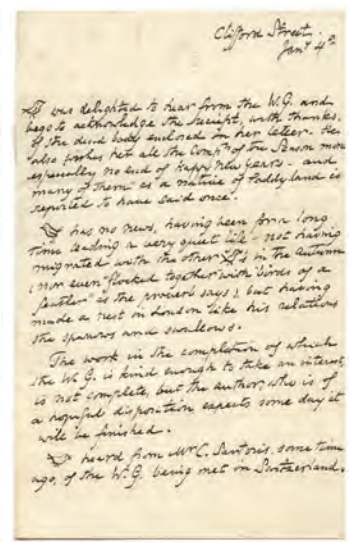 Clifford Street.
Jany 4th
was delighted to hear from the W.G. and
begs to acknowledge the receipt, with thanks,
of the dried body enclosed in her letter. He
also wishes her all the Compts of the Season more
especially no end of Happy New Years - and
many of them as a native of Paddyland is
reported to have said once.
has no news, having been for a long
time leading a very quiet life - not having
migrated with the other in the Autumn
nor even "flocked together" with "birds of a
feather" as the proverb says, but having
made a nest in London like his relations
the sparrows and swallows.
The work in the completion of which
the W.G. is kind enough to take an interest,
is not complete, but the author, who is of
a hopeful disposition expects some day it
will be finished.
heard from Mr C. Sartoris, some time
ago, of the W.G. being met in Switzerland.